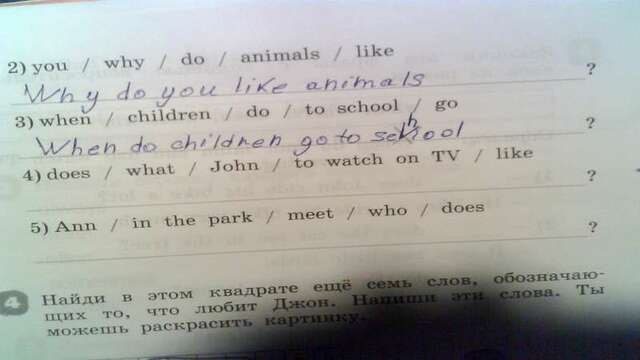 2) you / why / do / animals / like
Why do you like animals ?
3) when / children / do / to school / go
When do children go to school ?
4) does / what / John / to watch on TV / like
?
5) Ann / in the park / meet / who / does
?
4 Найди в этом квадрате ещё семь слов, обозначаю-
щих то, что любит Джон. Напиши эти слова. Ты
можешь раскрасить картинку.